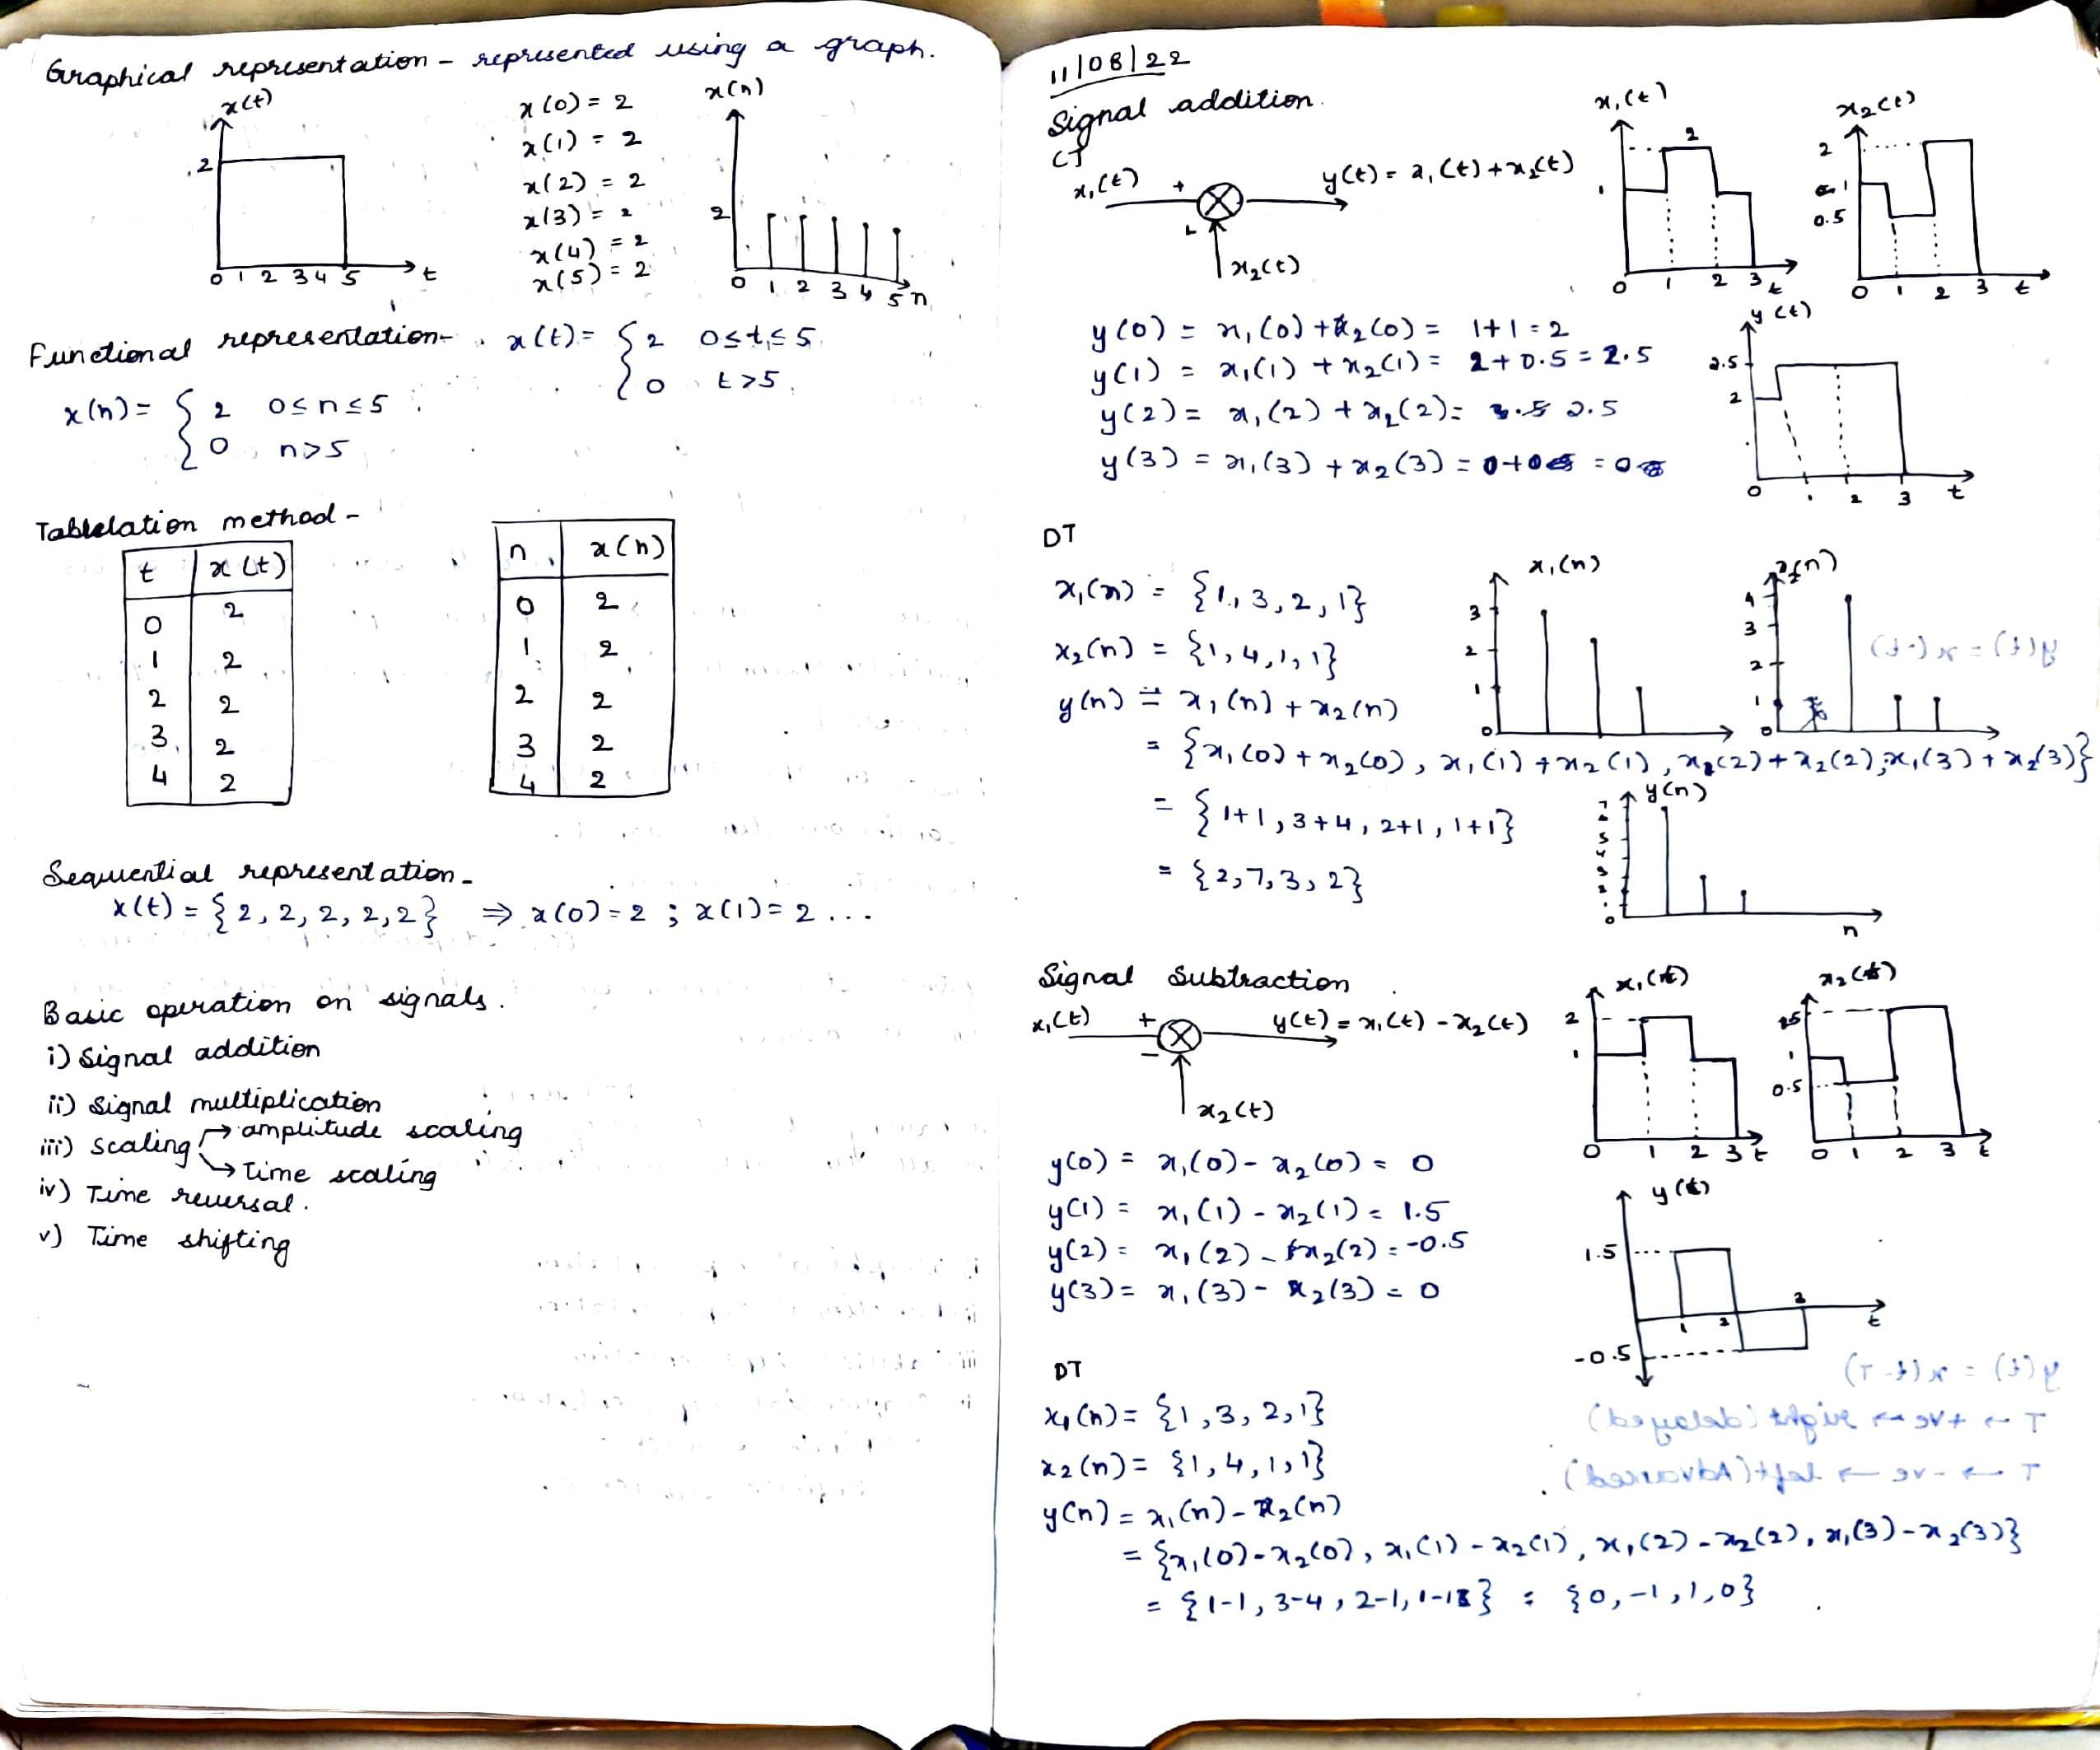 Graphical representation - represented using a graph.
x(t)
2
0 1 2 3 4 5 t
x(0) = 2
x(1) = 2
x(2) = 2
x(3) = 2
x(4) = 2
x(5) = 2
x(n)
2
0 1 2 3 4 5 n
Functional representation- x(t) = { 2 0≤t≤5
0 t>5
x(n) = { 2 0≤n≤5
0, n>5
t x(t)
0 2
1 2
2 2
3 2
4 2
n x(n)
0 2
1 2
2 2
3 2
4 2
Sequential representation-
x(t) = {2, 2, 2, 2, 2} ⇒ x(0) = 2 ; x(1) = 2 ...
Basic operation on signals.
i) Signal addition
ii) Signal multiplication
iii) Scaling → amplitude scaling
→ Time scaling
iv) Time reversal.
v) Time shifting
11/08/22
Signal addition.
CT
x₁(t) + y(t) = x₁(t) + x₂(t)
x₂(t)
x₁(t)
2
1
0 1 2 3 t
x₂(t)
2
1
0.5
0 1 2 3 t
y(0) = x₁(0) + x₂(0) = 1+1 = 2
y(1) = x₁(1) + x₂(1) = 2+0.5 = 2.5
y(2) = x₁(2) + x₂(2) = 2.5
y(3) = x₁(3) + x₂(3) = 0+0 = 0
y(t)
2.5
2
0 1 2 3 t
DT
x₁(n) = {1, 3, 2, 1}
x₂(n) = {1, 4, 1, 1}
y(n) = x₁(n) + x₂(n)
= {x₁(0) + x₂(0), x₁(1) + x₂(1), x₁(2) + x₂(2), x₁(3) + x₂(3)}
= {1+1, 3+4, 2+1, 1+1}
= {2, 7, 3, 2}
x₁(n)
3
2
1
0
4
3
2
1
0
y(n)
n
Signal Subtraction
x₁(t) + y(t) = x₁(t) - x₂(t)
-
x₂(t)
x₁(t)
2
1
0 1 2 3 t
x₂(t)
1
0.5
0 1 2 3 t
y(0) = x₁(0) - x₂(0) = 0
y(1) = x₁(1) - x₂(1) = 1.5
y(2) = x₁(2) - x₂(2) = -0.5
y(3) = x₁(3) - x₂(3) = 0
y(t)
1.5
1 2 3 t
-0.5
DT
x₁(n) = {1, 3, 2, 1}
x₂(n) = {1, 4, 1, 1}
y(n) = x₁(n) - x₂(n)
= {x₁(0) - x₂(0), x₁(1) - x₂(1), x₁(2) - x₂(2), x₁(3) - x₂(3)}
= {1-1, 3-4, 2-1, 1-1} = {0, -1, 1, 0}